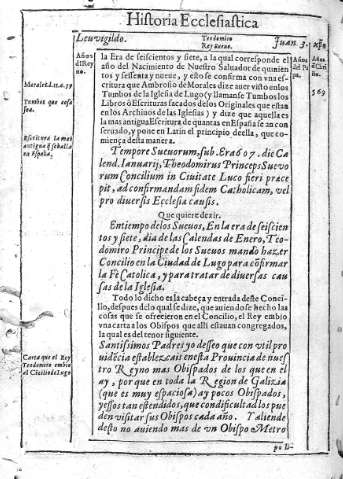 Historia Ecclesiastica
Leuuigildo.
Teodomiro
Rey sueuo.
Juan. 3.
Años
del Rey
no.
Años
del Pa
pa.
la Era de seiscientos y siete, a la qual corresponde el
año del Nacimiento de Nuestro Saluador de quinien
tos y sessenta y nueue, y esto se confirma con vna es
critura que Ambrosio de Morales dize auer visto en los
Tumbos de la Iglesia de Lugo (y llamanse Tumbos los
Libros ò Escrituras sacados de los Originales que estan
en los Archiuos de las Iglesias) y dize que aquella es
la mas antigua Escritura de quantas en España se an con
seruado, y pone en Latin el principio deella, que co-
miença desta manera.
Morales
Tumbos que cosa
sea.
Escritura la mas
antigua q̃ se halla
en España.
569
Tempore Sueuorum, sub. Era 607. die Ca
lend. Ianuarij, Theodomirus Princeps Sueuo
rum Concilium in Ciuitate Luco fieri præce
pit, ad confirmandam fidem Catholicam, vel
pro diuersis Ecclesiæ causis.
Que quiere dezir.
En tiempo de los Sueuos, En la era de seiscien
tos y siete, dia de las Calendas de Enero, Teo-
domiro Principe de los Sueuos mandò hazer
Concilio en la Ciudad de Lugo para cõfirmar
la Fe Catolica, y para tratar de diuersas cau
sas de la Iglesia.
Todo lo dicho es la cabeça y entrada deste Conci-
lio, despues de lo qual se dize, que auiendose hecho las
cosas que se ofrecieron en el Concilio, el Rey embio
vna carta a los Obispos que alli estauan congregados,
la qual es del tenor siguiente.
Santissimos Padres yo desseo que con vtil pro
uidẽcia establezcais en esta Prouincia de nues
tro Reyno mas Obispados de los que en el
ay, por que en toda la Region de Galizia
(que es muy espaciosa) ay pocos Obispados,
y essos tan estendidos, que con dificultad los pue
den visitar sus Obispos cada año. Y allende
desto no auiendo mas de vn Obispo Metro
Carta que el Rey
Teodomiro embio
al Cõcilio de Lugo
po li-